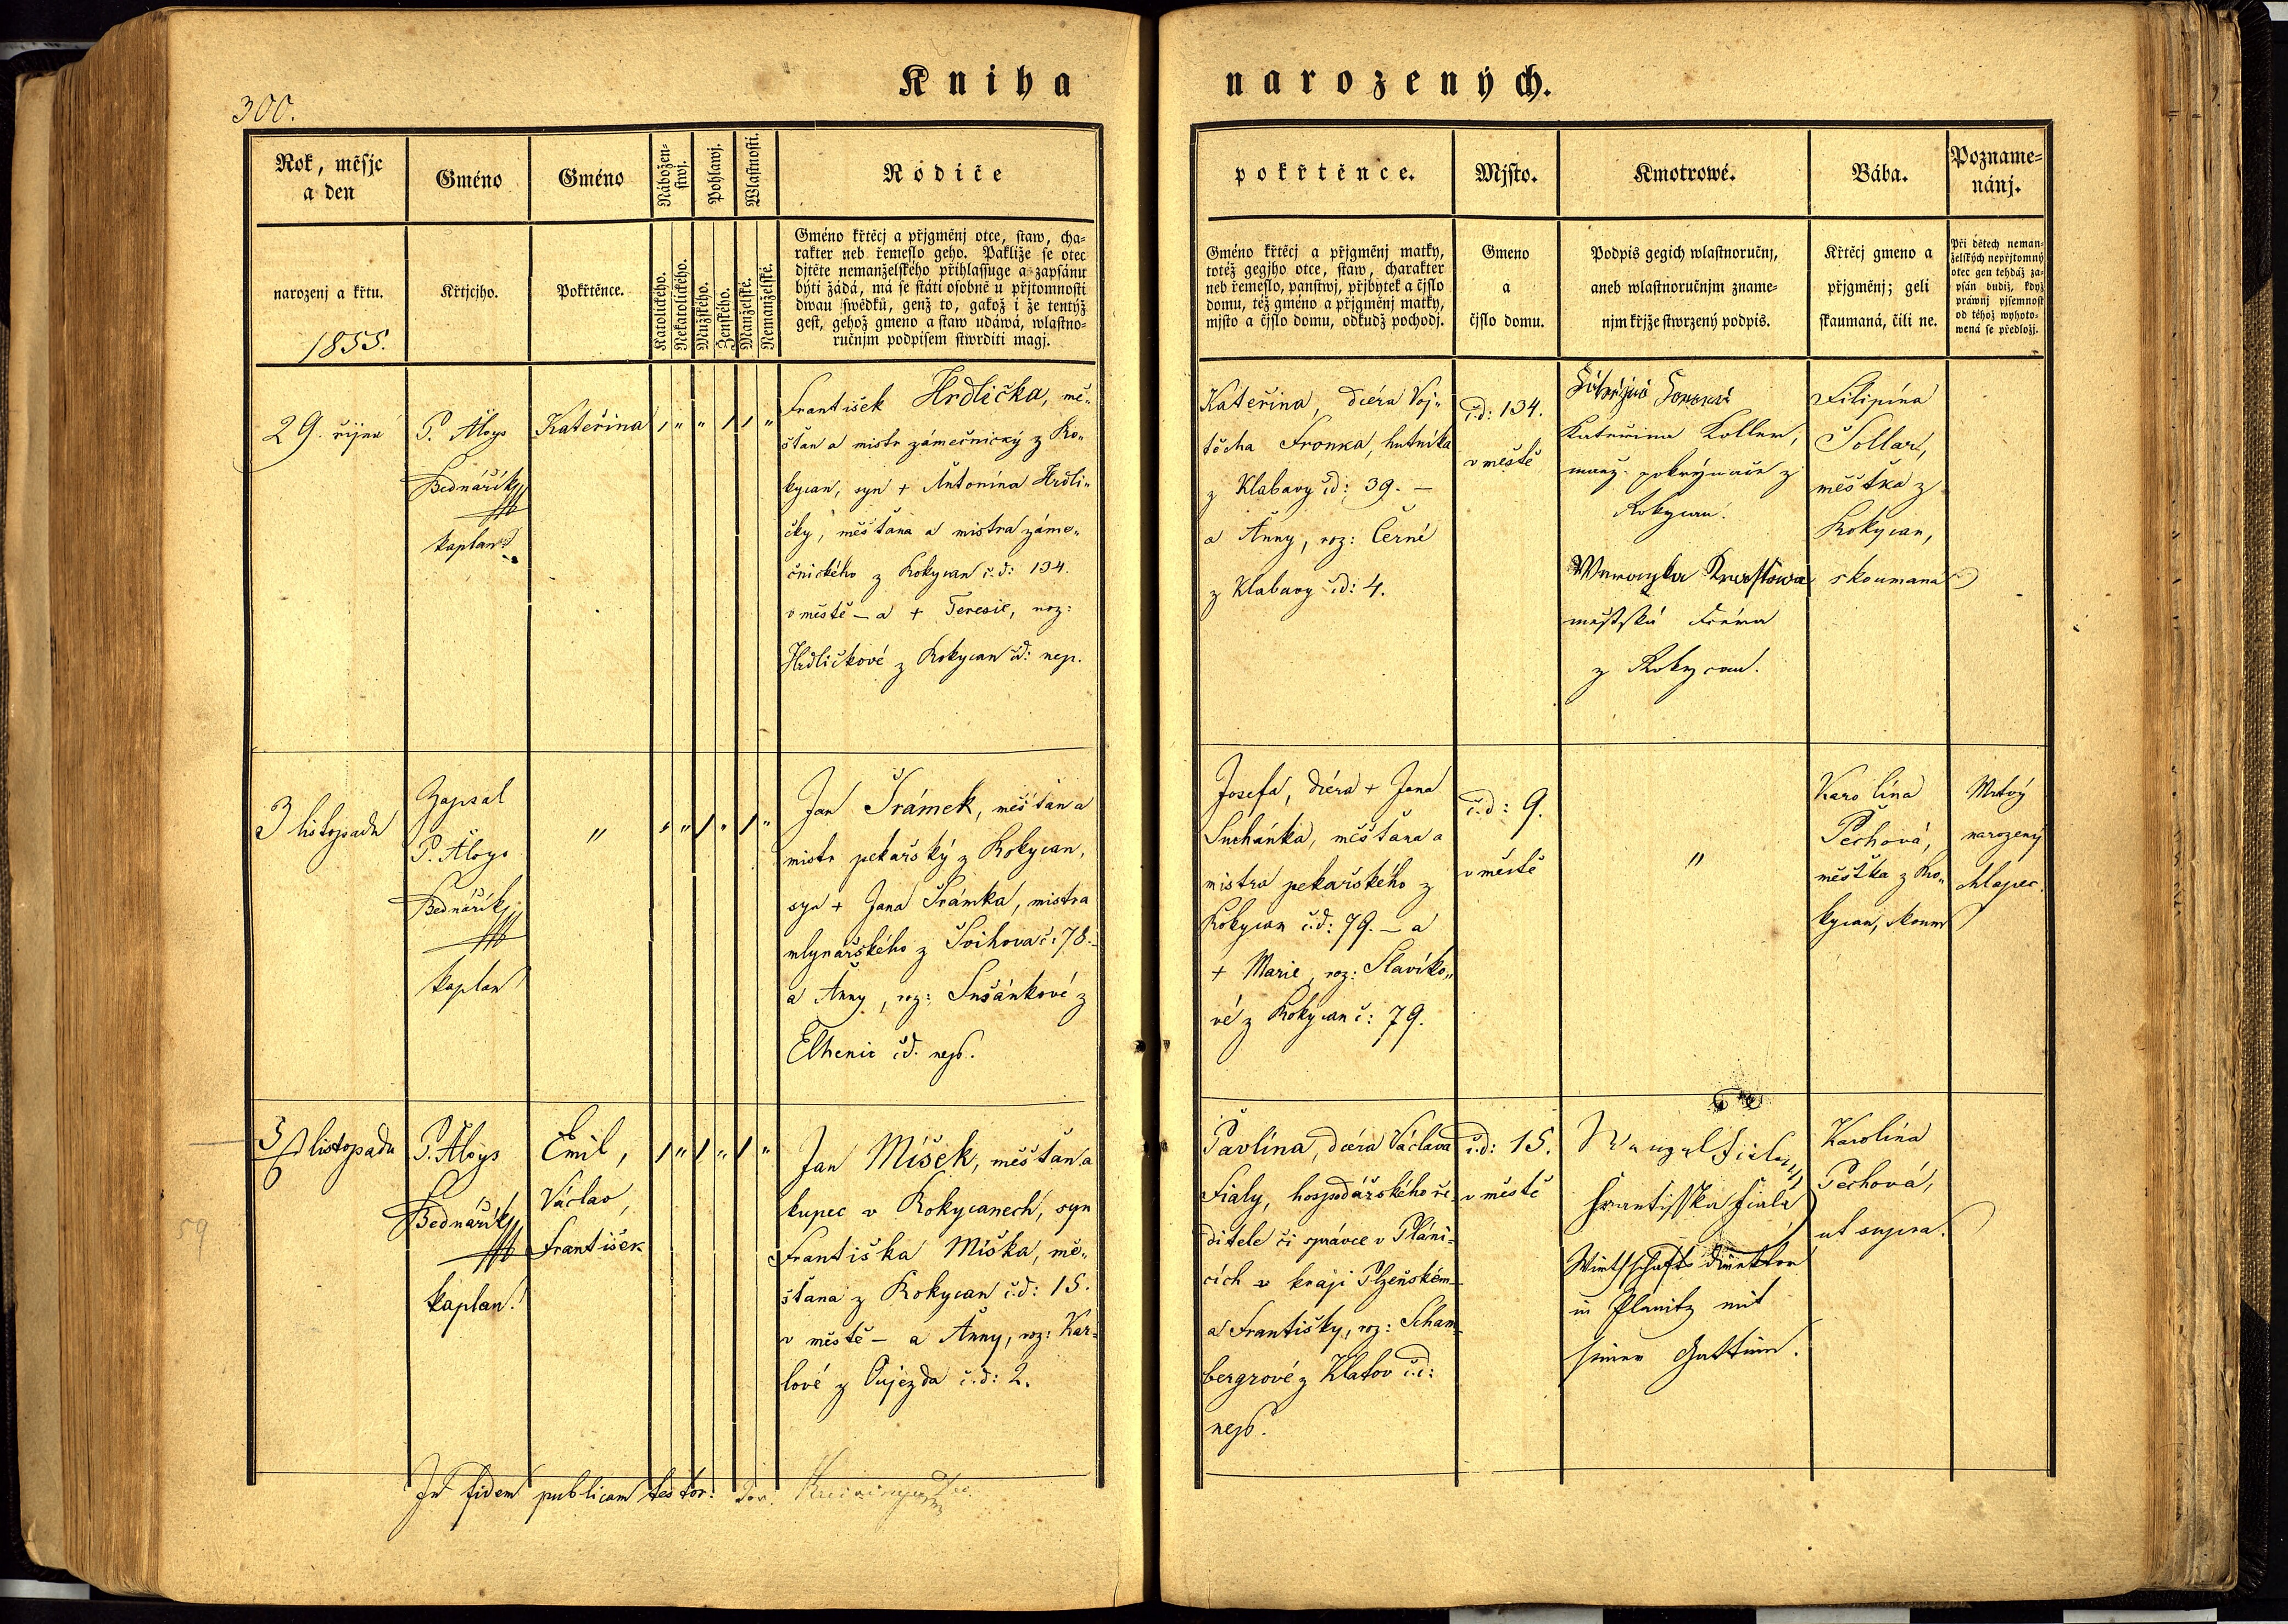 Kniha narozených.
300.
Rok, měsjc
a den
narozenj a křtu.
1855.
Gméno
Křtjcjho.
Gméno
Pokřtěnce.
Nábožen-
stwj.
Katolického.
Nekatolického.
Pohlawj.
Mužského.
Ženského.
Wlastnosti.
Manželské.
Nemanželské.
Rodiče
Gméno křtěcj a přjgměnj otce, staw, cha-
rakter neb řemeslo geho. Pakliže se otec
djtěte nemanželského přihlassuge a zapsánu
býti žádá, má se státi osobně u přjtomnosti
dwau swědků, genž to, gakož i že tentýž
gest, gehož gmeno a staw udáwá, wlastno-
ručnjm podpisem stwrditi magj.
pokřtěnce.
Gméno křtěcj a přjgměnj matky,
totéž gegjho otce, staw, charakter
neb řemeslo, panstwj, přjbytek a čjslo
domu, též gméno a přjgměnj matky,
mjsto a čjslo domu, odkudž pochodj.
Mjsto.
Gmeno
a
čjslo domu.
Kmotrowé.
Podpis gegich wlastnoručnj,
aneb wlastnoručnjm zname-
njm křjže stwrzený podpis.
Bába.
Křtěcj gmeno a
přjgměnj; geli
skaumaná, čili ne.
Pozname-
nánj.
Při dětech neman-
želských nepřjtomný
otec gen tehdáž za-
psán budiž, když
práwnj pjsemnost
od téhož wyhoto-
wená se předložj.
29. října
P. Aloys
Bednářík
kaplan
Kateřina
František Hrdlička, mě-
šťan a mistr zámečnický z Ro-
kycan, syn + Antonína Hrdli-
čky, měšťana a mistra záme-
čnického z Rokycan č.d: 134.
v městě – a + Teresie, roz:
Hrdličkové z Rokycan č.d: nep.
Kateřina, dcéra Voj-
těcha Fronka, hutníka
z Klabavy čd: 39. –
a Anny, roz: Černé
z Klabavy čd: 4.
č.d: 134.
v městě
Kateřina Koller,
manž. pokrývače z
Rokycan.
městská dcéra
z Rokycan.
Filipína
Šollar,
měštka z
Rokycan,
skoumaná
3 listopadu
Zapsal
P. Aloys
Bednářík
kaplan
"
Jan Šrámek, měšťan a
mistr pekařský z Rokycan,
syn + Jana Šrámka, mistra
mlynářského z Švihova č: 78. –
a Anny, roz: Sušánkové z
Elhenic č.d. nep.
Josefa, dcéra + Jana
Suchánka, měšťana a
mistra pekařského z
Rokycan č.d: 79. – a
+ Marie, roz: Slavíko-
vé z Rokycan č: 79.
č.d: 9.
v městě
"
Karolína
Pechová,
měštka z Ro-
kycan, skoum
Mrtvý
narozený
chlapec.
5/6 listopadu
P. Aloys
Bednářík
kaplan.
Emil,
Václav,
František
Jan Míšek, měšťan a
kupec v Rokycanech, syn
Františka Míška, mě-
šťana z Rokycan č.d: 15.
v městě – a Anny, roz: Kar-
lové z Oujezda č.d: 2.
Pavlína, dcéra Václava
Fialy, hospodářského ře-
ditele či správce v Pláni-
cích v kraji Plzeňském
a Františky, roz: Scham-
bergrové z Klatov č.d:
nep.
č.d: 15.
v městě
Wenzel Fiala
Frantisska Fiala
Wirthschafts direktor
in Planitz mit
seiner Gattin.
Karolína
Pechová,
ut supra.
59
In fidem publicam testor: